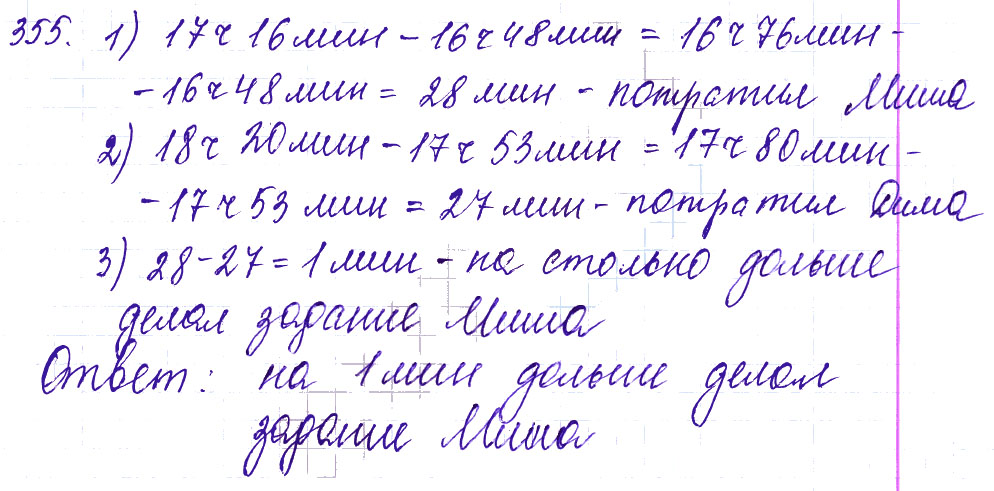 355. 1) 17ч 16мин – 16ч 48мин = 16ч 76мин –
– 16ч 48мин = 28мин – потратил Миша
2) 18ч 20мин – 17ч 53мин = 17ч 80мин –
– 17ч 53мин = 27мин – потратил Дима
3) 28 – 27 = 1мин – на столько дольше
делал задание Миша
Ответ: на 1мин дольше делал
задание Миша